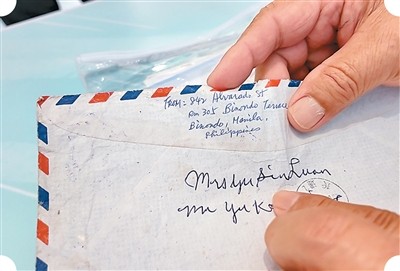 FROM: 842 Alvarado St
Rm 305 Binondo Terrace
Binondo, Manila,
Philippines
Mrs Yu Sin Luan
Mr Yu